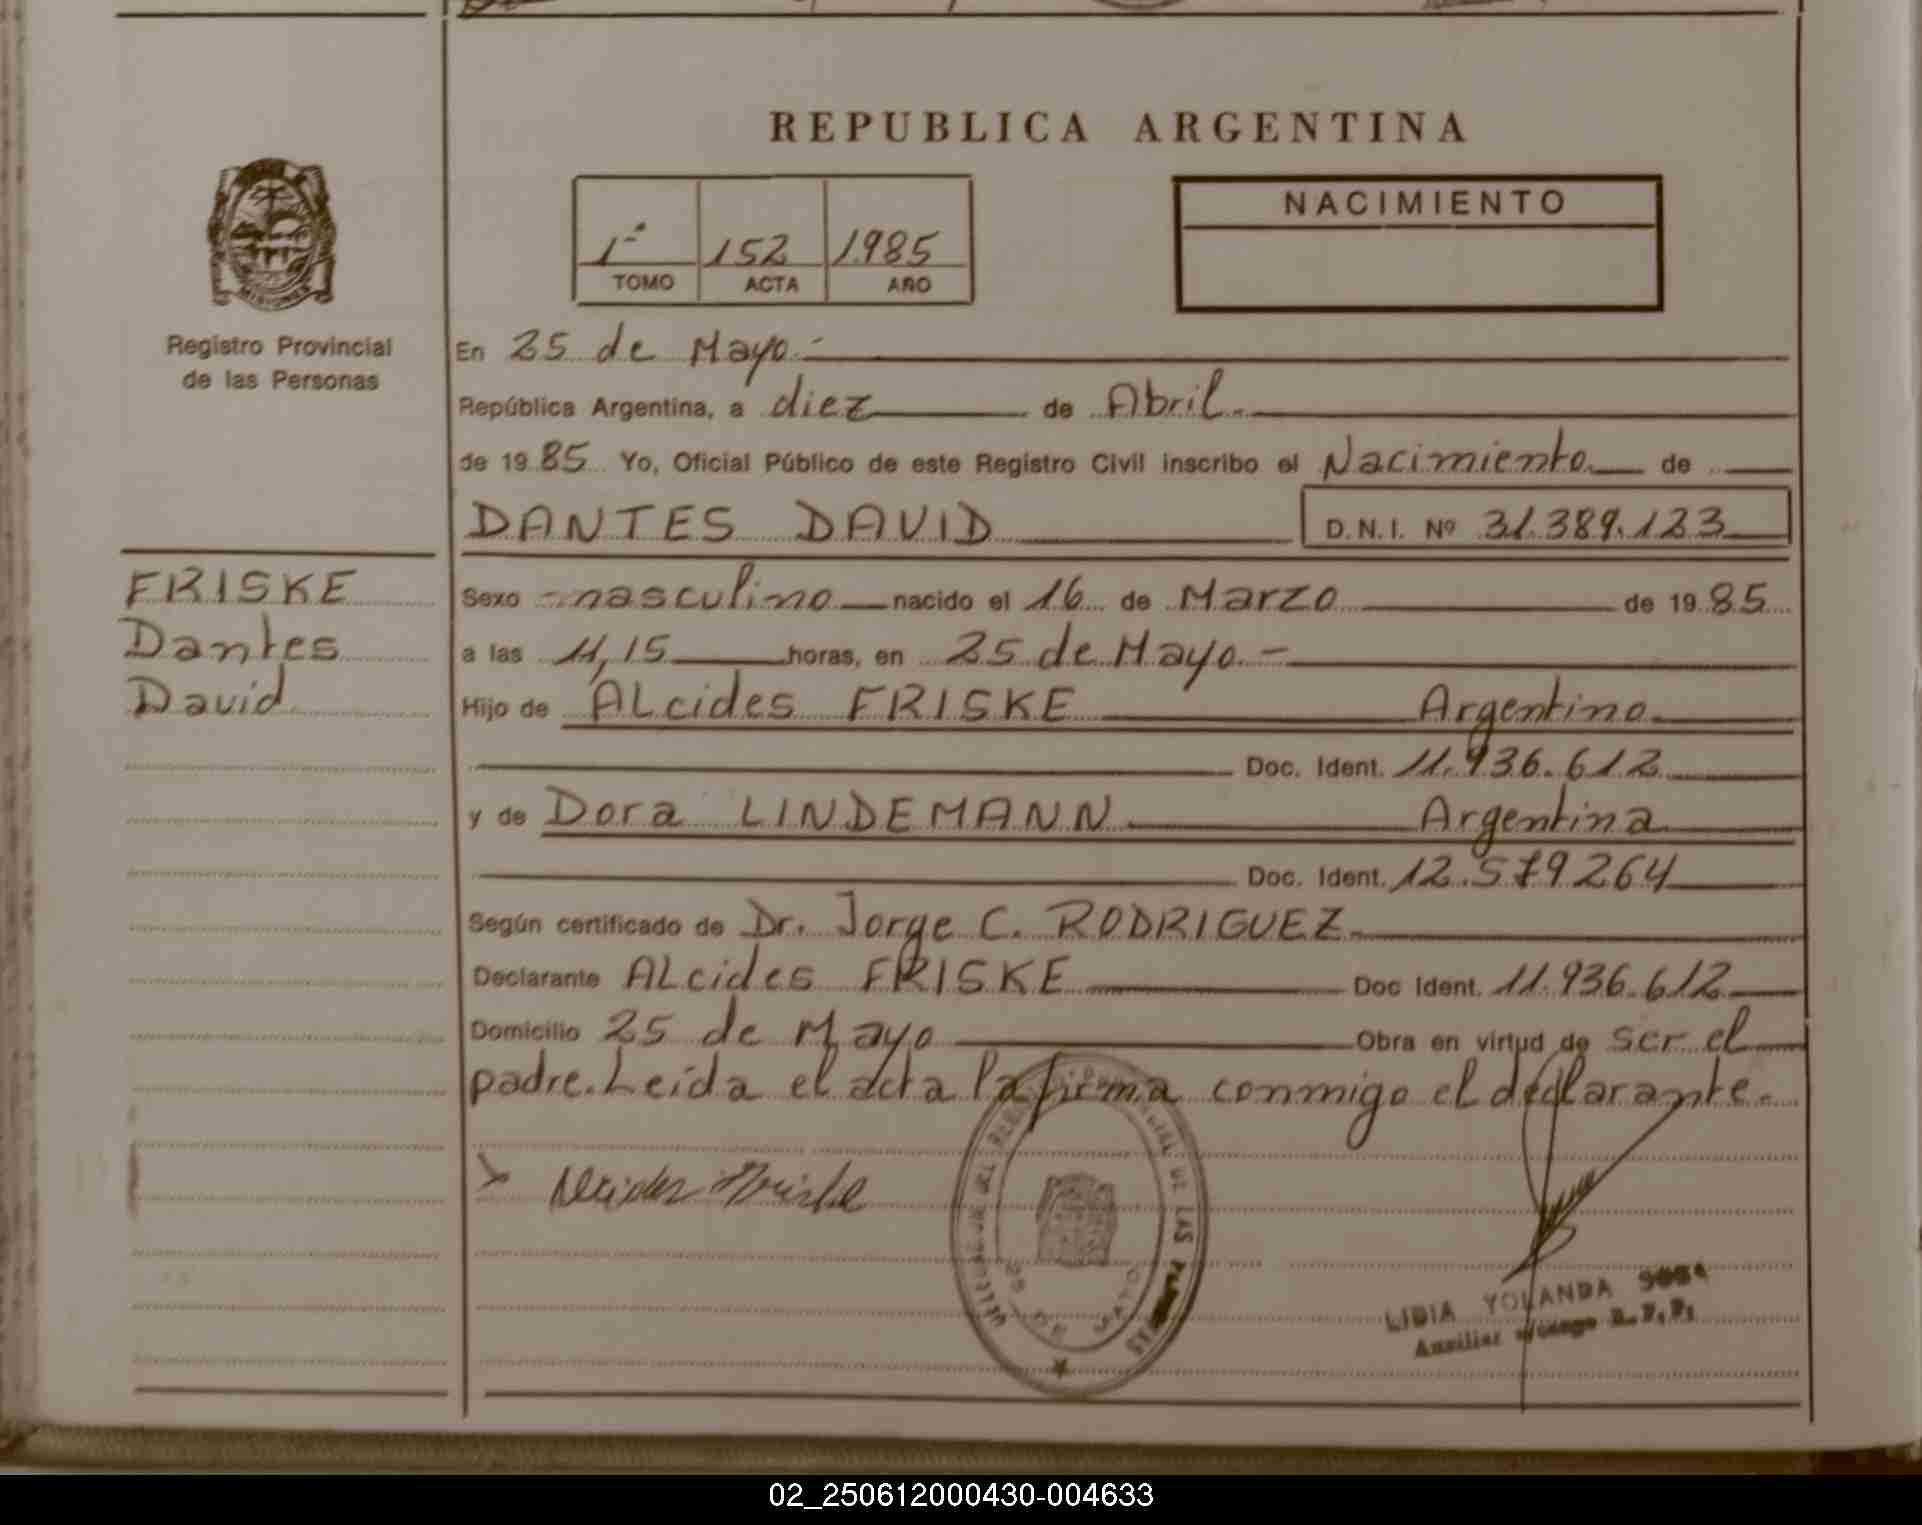 REPUBLICA ARGENTINA
1º 152 1.985
TOMO ACTA AÑO
NACIMIENTO
MISIONES
Registro Provincial
de las Personas
En 25 de Mayo.-
República Argentina, a diez de Abril.
de 19 85 Yo, Oficial Público de este Registro Civil inscribo el Nacimiento de
DANTES DAVID D.N.I. Nº 31.389.123
FRISKE
Dantes
David
Sexo masculino nacido el 16 de Marzo de 19 85
a las 11,15 horas, en 25 de Mayo.-
Hijo de ALcides FRISKE Argentino
Doc. Ident. 11.936.612
y de Dora LINDEMANN Argentina
Doc. Ident. 12.579264
Según certificado de Dr. Jorge C. RODRIGUEZ.
Declarante ALcides FRISKE Doc Ident. 11.936.612
Domicilio 25 de Mayo Obra en virtud de ser el
padre. Leída el acta la firma conmigo el declarante.
Alcides Friske
25 DE MAYO
LIDIA YOLANDA
Auxiliar
02_250612000430-004633